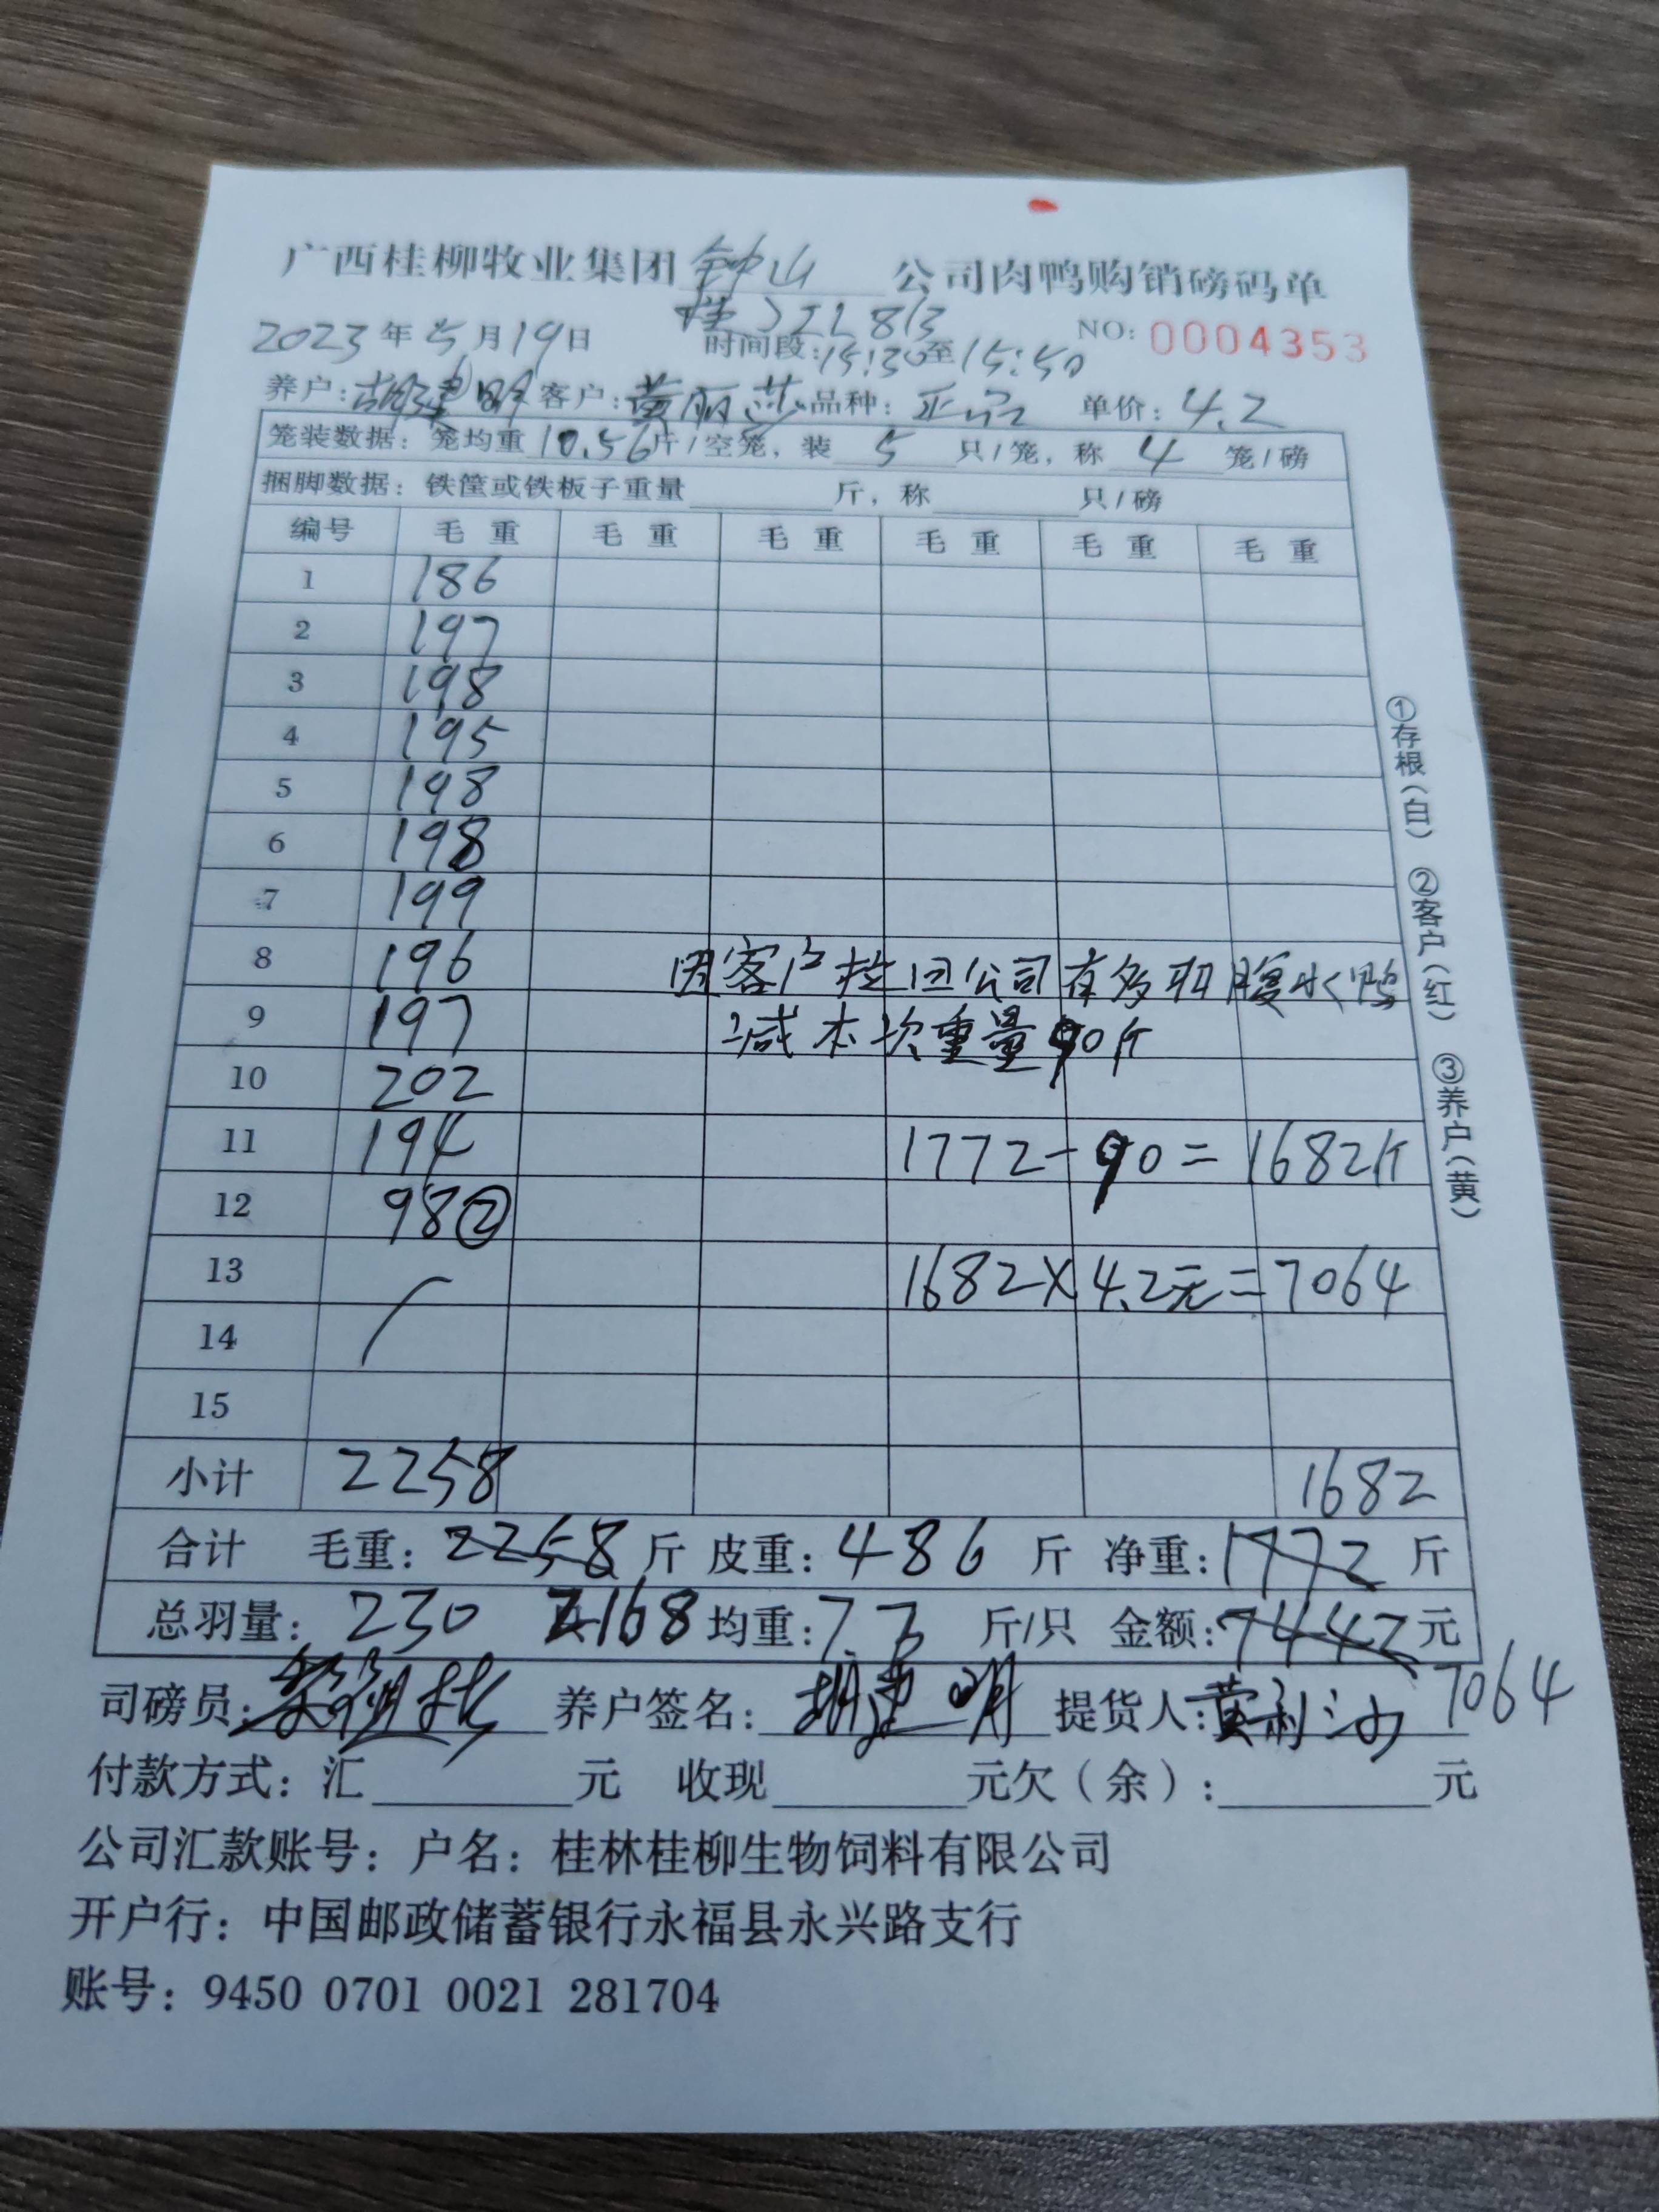 广西桂柳牧业集团 钟山 公司肉鸭购销磅码单
桂J2L813
2023年5月19日 时间段:15:30至15:50 NO: 0004353
养户:胡建明 客户:黄丽莎 品种:正品 单价:4.2
笼装数据:笼均重10.56斤/空笼,装5只/笼,称4笼/磅
捆脚数据:铁筐或铁板子重量 斤,称 只/磅
编号 毛重 毛重 毛重 毛重 毛重 毛重
1 186
2 197
3 198
4 195
5 198
6 198
7 199
8 196 因客户拉回公司有多羽腹水鸭
9 197 减本次重量90斤
10 202
11 194 1772-90=1682斤
12 98②
13 1682×4.2元=7064
14
15
小计 2258 1682
合计 毛重:2258斤 皮重:486斤 净重:1772斤
总羽量:230 2168 均重:7.7斤/只 金额:7442元
司磅员: 养户签名:胡建明 提货人:黄利沙 7064
付款方式:汇 元 收现 元欠(余): 元
公司汇款账号:户名:桂林桂柳生物饲料有限公司
开户行:中国邮政储蓄银行永福县永兴路支行
账号:9450 0701 0021 281704
①存根(白) ②客户(红) ③养户(黄)